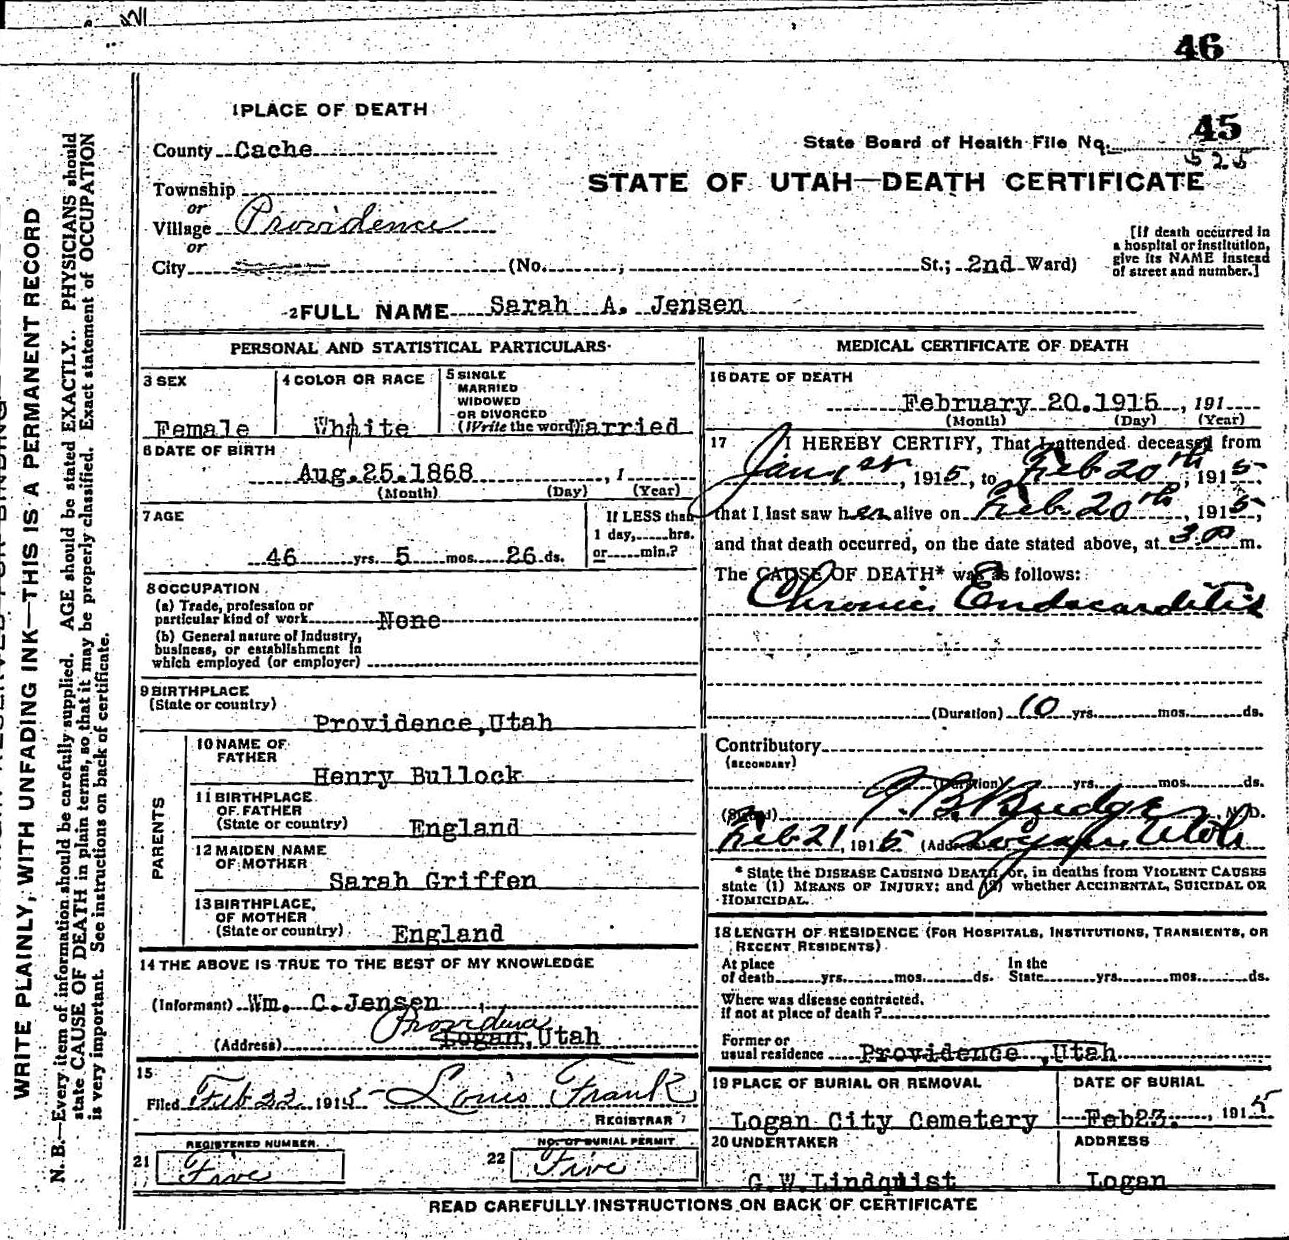 46
1 PLACE OF DEATH
45
County Cache
State Board of Health File No. 525
Township
STATE OF UTAH—DEATH CERTIFICATE
or
Village Providence
or
City (No. ; St.; 2nd Ward)
[If death occurred in
a hospital or institution,
give its NAME instead
of street and number.]
2 FULL NAME Sarah A. Jensen
PERSONAL AND STATISTICAL PARTICULARS
3 SEX
Female
4 COLOR OR RACE
Whtite
5 SINGLE
MARRIED
WIDOWED
OR DIVORCED
(Write the word) Married
6 DATE OF BIRTH
Aug.25.1868 , 1
(Month) (Day) (Year)
7 AGE
46 yrs. 5 mos. 26 ds.
If LESS than
1 day, hrs.
or min.?
8 OCCUPATION
(a) Trade, profession or
particular kind of work None
(b) General nature of Industry,
business, or establishment in
which employed (or employer)
9 BIRTHPLACE
(State or country)
Providence,Utah
PARENTS
10 NAME OF
FATHER
Henry Bullock
11 BIRTHPLACE
OF FATHER
(State or country) England
12 MAIDEN NAME
OF MOTHER
Sarah Griffen
13 BIRTHPLACE,
OF MOTHER
(State or country) England
14 THE ABOVE IS TRUE TO THE BEST OF MY KNOWLEDGE
(Informant) Wm. C.Jensen
Providence
(Address) Logan,Utah
15
Filed Feb 22, 1915 Louis Frank
REGISTRAR
REGISTERED NUMBER
21 Five
NO. OF BURIAL PERMIT
22 Five
MEDICAL CERTIFICATE OF DEATH
16 DATE OF DEATH
February 20.1915 , 191
(Month) (Day) (Year)
17 I HEREBY CERTIFY, That I attended deceased from
Jany 1st, 1915, to Feb 20th, 1915
that I last saw her alive on Feb 20th, 1915,
and that death occurred, on the date stated above, at 3.00 m.
The CAUSE OF DEATH* was as follows:
Chronic Endocarditis
(Duration) 10 yrs. mos. ds.
Contributory
(SECONDARY)
(Duration) yrs. mos. ds.
(Signed) Budge M.D.
Feb 21, 1915 (Address) Logan, Utah
* State the DISEASE CAUSING DEATH, or, in deaths from VIOLENT CAUSES
state (1) MEANS OF INJURY; and (2) whether ACCIDENTAL, SUICIDAL OR
HOMICIDAL.
18 LENGTH OF RESIDENCE (FOR HOSPITALS, INSTITUTIONS, TRANSIENTS, OR
RECENT RESIDENTS)
At place
of death yrs. mos. ds.
In the
State yrs. mos. ds.
Where was disease contracted.
If not at place of death?
Former or
usual residence Providence ,Utah
19 PLACE OF BURIAL OR REMOVAL
Logan City Cemetery
DATE OF BURIAL
Feb23. , 1915
20 UNDERTAKER
G.W.Lindquist
ADDRESS
Logan
READ CAREFULLY INSTRUCTIONS ON BACK OF CERTIFICATE
WRITE PLAINLY, WITH UNFADING INK—THIS IS A PERMANENT RECORD
N. B.—Every item of information should be carefully supplied. AGE should be stated EXACTLY. PHYSICIANS should
state CAUSE OF DEATH in plain terms, so that it may be properly classified. Exact statement of OCCUPATION
is very important. See instructions on back of certificate.